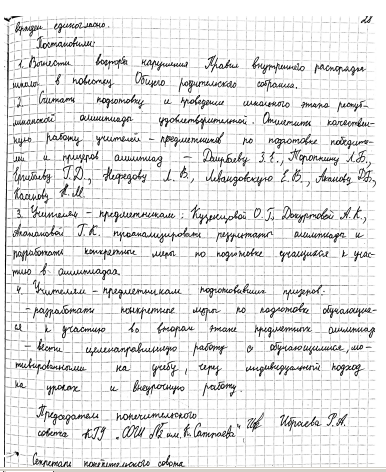 28
единогласно.
Постановили:
1. Вынести вопросы нарушения Правил внутреннего распорядка
школы в повестку Общего родительского собрания.
2. Считать подготовку и проведение школьного этапа респуб-
ликанской олимпиады удовлетворительной. Отметить качествен-
ную работу учителей - предметников по подготовке победите-
лей и призеров олимпиад - З.Е., Л.В.,
Г.Д., Нефедову Л.В., Левандовскую Е.В.,
Н.М.
3. Учителям - предметникам: Кузнецовой О.Г., А.К.,
Г.К. проанализировать результаты олимпиады и
разработать конкретные меры по подготовке учащихся к учас-
тию в олимпиадах.
4. Учителям - предметникам подготовивших призеров:
- разработать конкретные меры по подготовке обучающих-
ся к участию во втором этапе предметных олимпиад
- вести целенаправленную работу с обучающимися, мо-
тивированными на учебу, через индивидуальный подход
на уроках и внеурочную работу.
Председатель попечительского
совета КГУ "СОШ №2 им. К. Сатпаева" Ибраева Г.А.
Секретарь попечительского совета